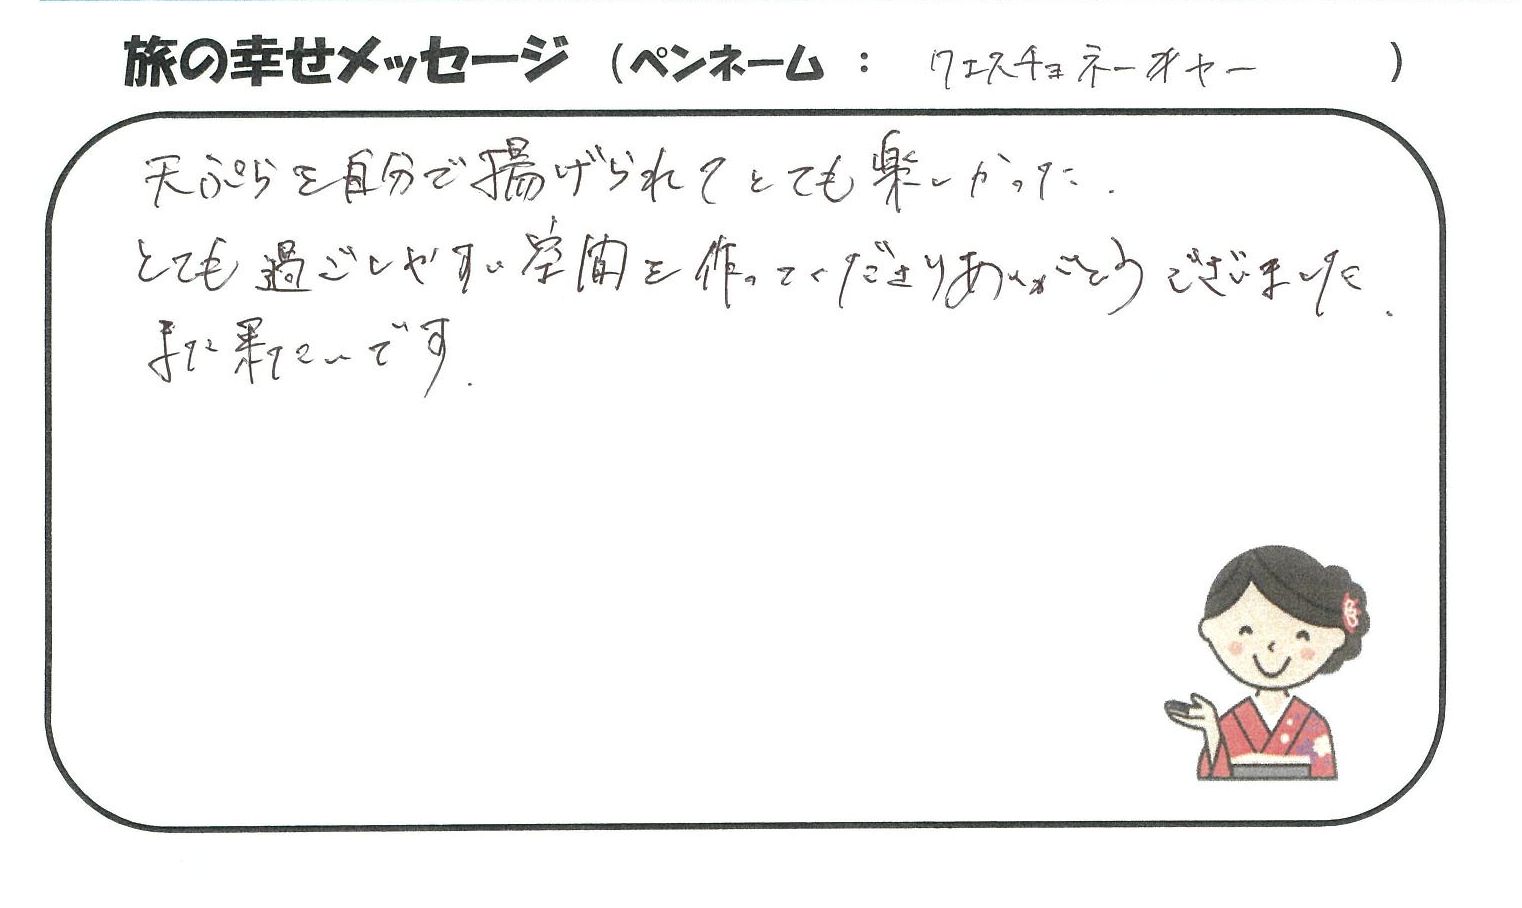 旅の幸せメッセージ (ペンネーム : ウエスチョネーオャー )
天ぷらを自分で揚げられてとても楽しかった.
とても過ごしやすい空間を作ってくださりありがとうございました.
また来たいです.